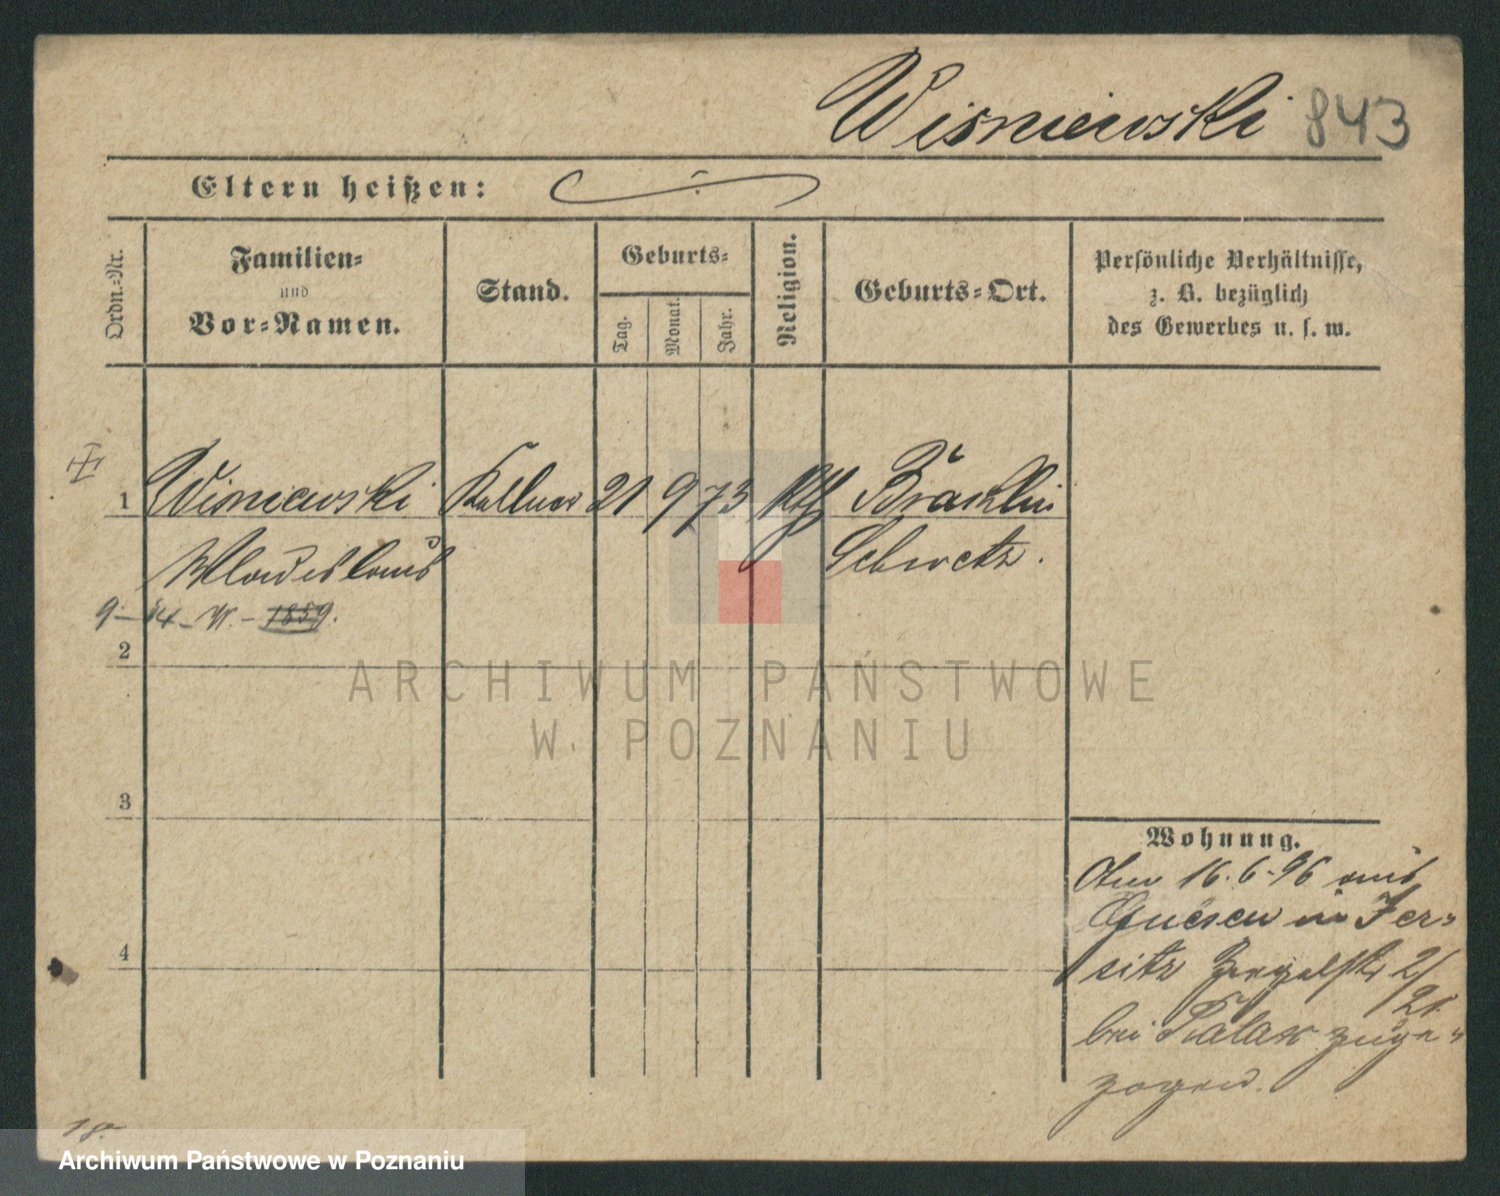 Wisniewski 843
Eltern heißen:
Ordn.-Nr.
Familien-
und
Vor-Namen.
Stand.
Geburts-
Tag.
Monat.
Jahr.
Religion.
Geburts-Ort.
Persönliche Verhältnisse,
z. B. bezüglich
des Gewerbes u. s. w.
1 Wisniewski Kellner 21 9 73 kth
Wladislaus Schwetz.
1859.
2
3
4
Wohnung.
Am 16.6.96 aus
Gnesen in Jer-
sitz 2/
21.
bei zuge-
zogen.
ARCHIWUM PAŃSTWOWE
W POZNANIU
Archiwum Państwowe w Poznaniu